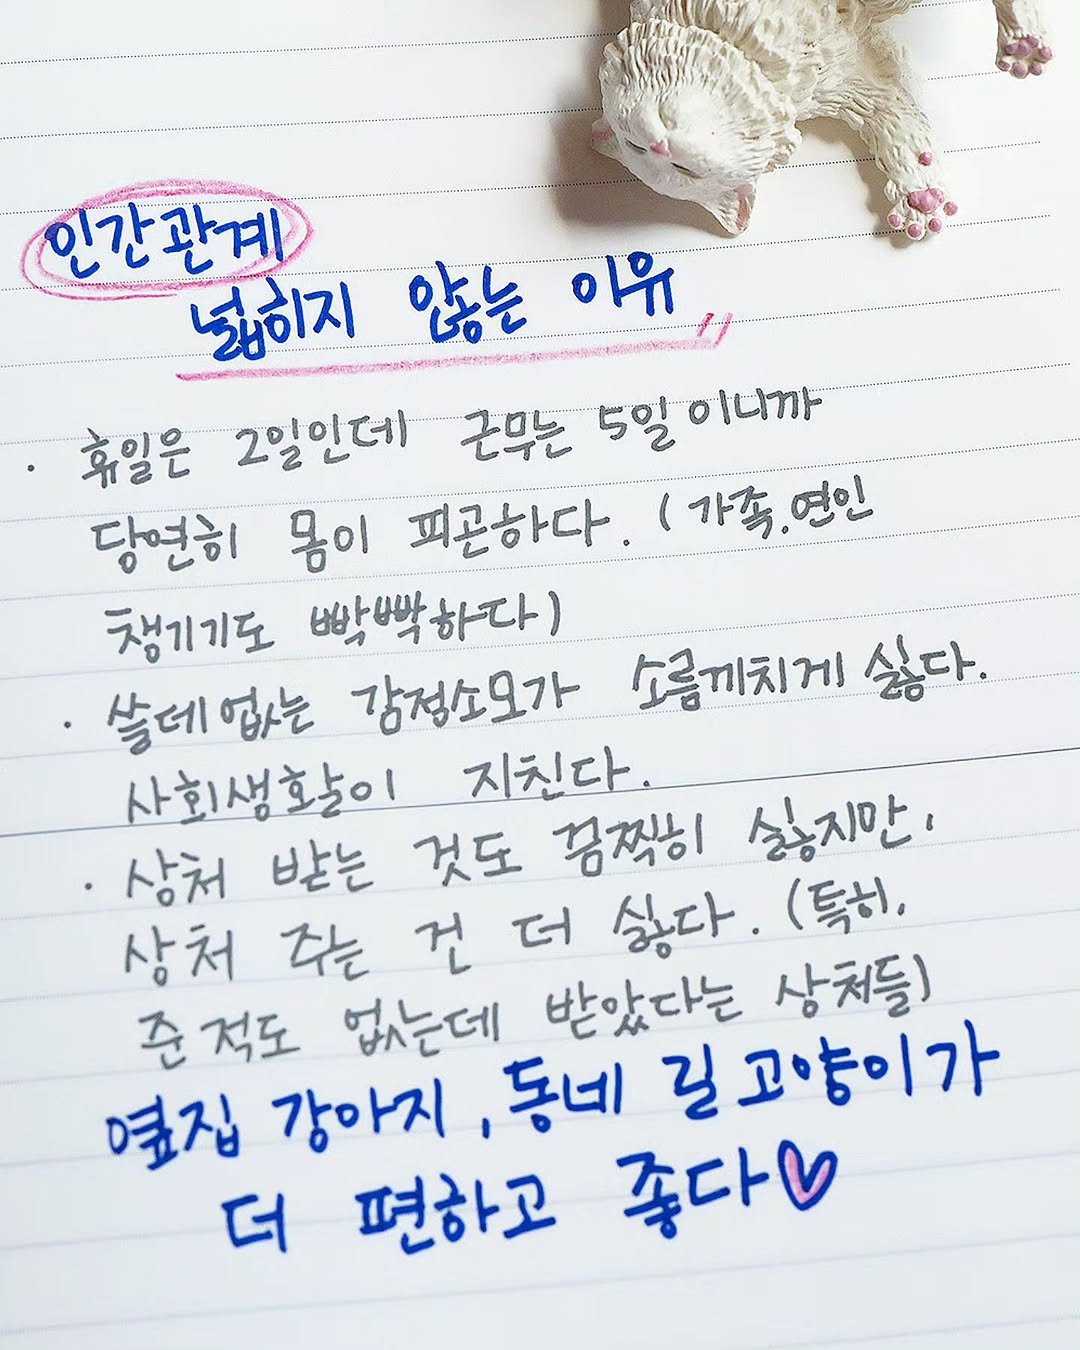 인간관계
넓히지 않는 이유
· 휴일은 2일인데 근무는 5일이니까
당연히 몸이 피곤하다. (가족.연인
챙기기도 빡빡하다)
· 쓸데없는 감정소모가 소름끼치게 싫다.
사회생활이 지친다.
· 상처 받는 것도 끔찍히 싫지만,
상처 주는 건 더 싫다. (특히,
준 적도 없는데 받았다는 상처들)
옆집 강아지, 동네 길고양이가
더 편하고 좋다♡